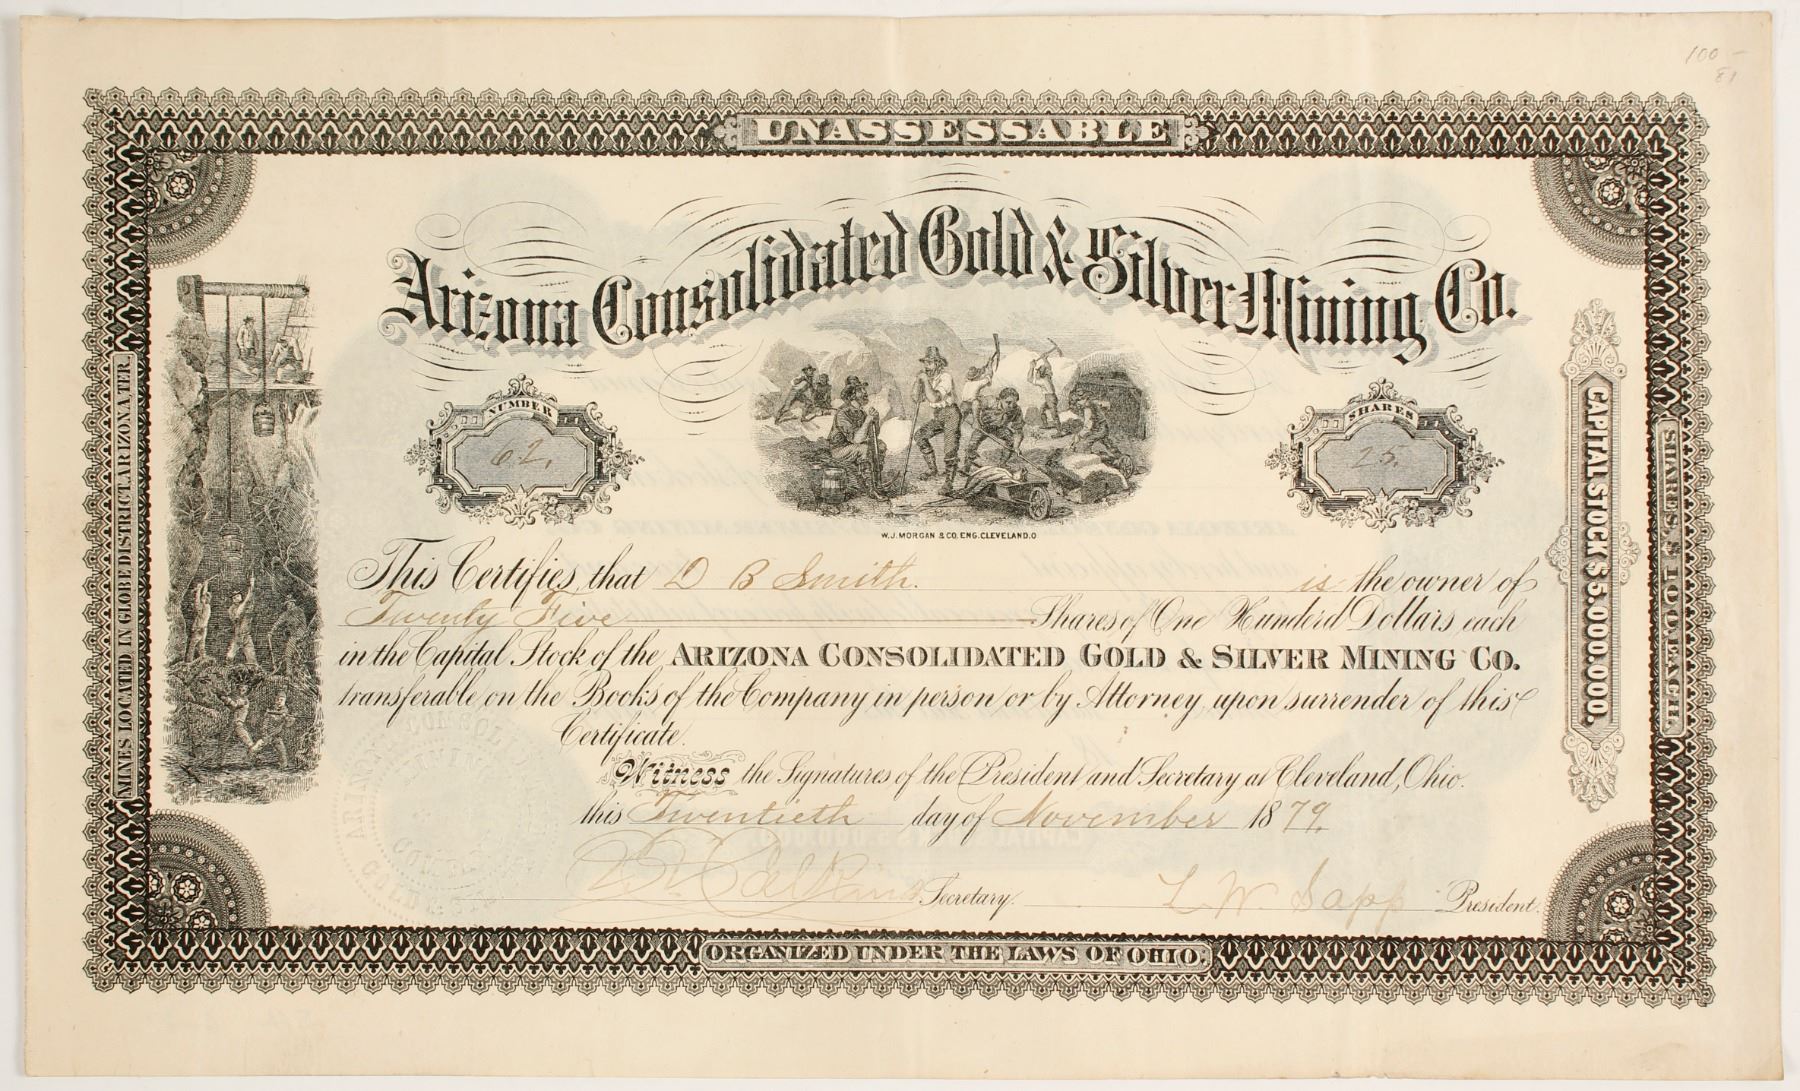 100 —
81
UNASSESSABLE
Arizona Consolidated Gold & Silver Mining Co.
NUMBER
62.
SHARES
25.
W.J. MORGAN & CO. ENG. CLEVELAND. O
This Certifies, that D B Smith. is the owner of
Twenty Five Shares of One Hunderd Dollars, each
in the Capital Stock of the ARIZONA CONSOLIDATED GOLD & SILVER MINING CO.
transferable on the Books of the Company in person or by Attorney upon surrender of this
Certificate.
Witness the Signatures of the President and Secretary at Cleveland, Ohio.
this Twentieth day of November 1879.
Calkins Secretary.
L. W. Sapp President.
ORGANIZED UNDER THE LAWS OF OHIO.
MINES LOCATED IN GLOBE DISTRICT, ARIZONA TER.
CAPITAL STOCK $5.000.000.
SHARES, $100 EACH.